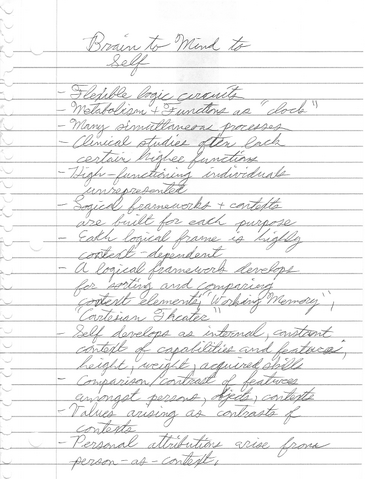 Brain to Mind to
Self
- Flexible logic circuits
- Metabolism + Functions as "clock"
- Many simultaneous processes
- Clinical studies often lack
certain higher functions
- High-functioning individuals
unrepresented
- Logical frameworks + contexts
are built for each purpose
- Each logical frame is highly
context-dependent
- A logical framework develops
for sorting and comparing
content elements, "Working Memory",
"Cartesian Theater"
- Self develops as internal, constant
context of capabilities and features,
height, weight, acquired skills
- Comparison/contrast of features
amongst persons, objects, contexts
- Values arising as contrasts of
contexts
- Personal attributions arise from
person-as-context,